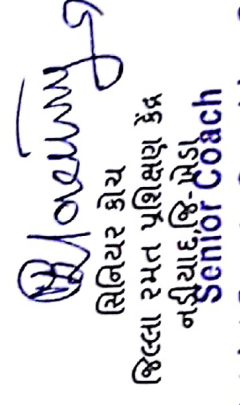 સિનિયર કોચ
જિલ્લા રમત પ્રશિક્ષણ કેંદ્ર
નડીયાદ,જિ-ખેડા
Senior Coach